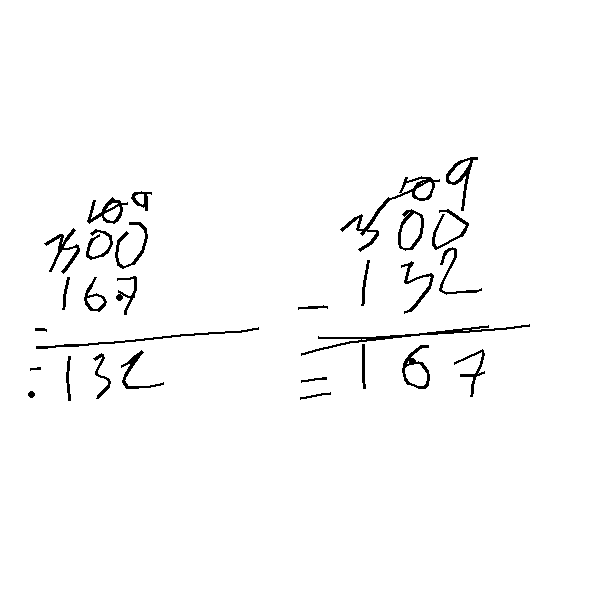 10 9
300
167
-
= 132
10 9
300
- 132
= 167